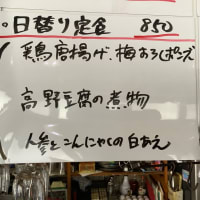 ○日替り定食 850
鶏唐揚げ、梅おろしポンズ
高野豆腐の煮物
人参とこんにゃくの白あえ